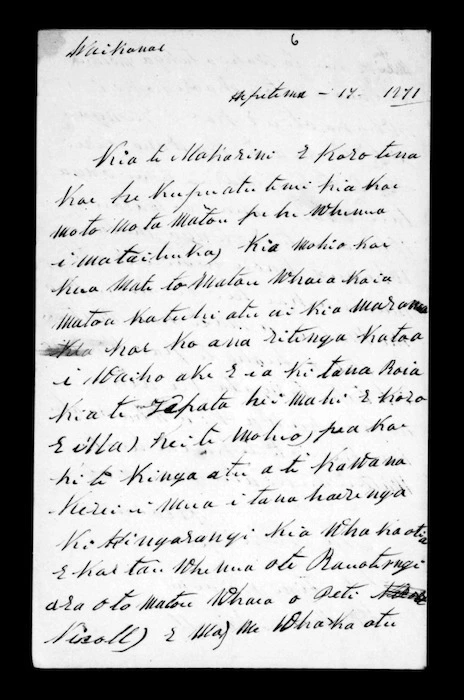 Waikanae
6
Hepetema - 14 - 1871
Kia te Makarini E Koro tena
koe he kupu atu tenei kia koe
mo to mata matou pehe Whenua
i mataihuka) Kia mohio koe
kua mate to Matou Whaea koia
matou ka tuhi atu ai kia marama
Kia koe ko ana ritenga katoa
i Waiho ake E ia ki tana Roia
kia te Tepata hei mahi E Koro
E i Ma) kei te mohio pea koe
ki te kinga atu a te Kawana
Kerei i mua i tana haerenga
ki Hingarangi kia Whakaotia
E koe tau Whenua o te Ranotengi
ara o to matou Whaea o Peti
Nicoll) E Ma) me Whaka atu